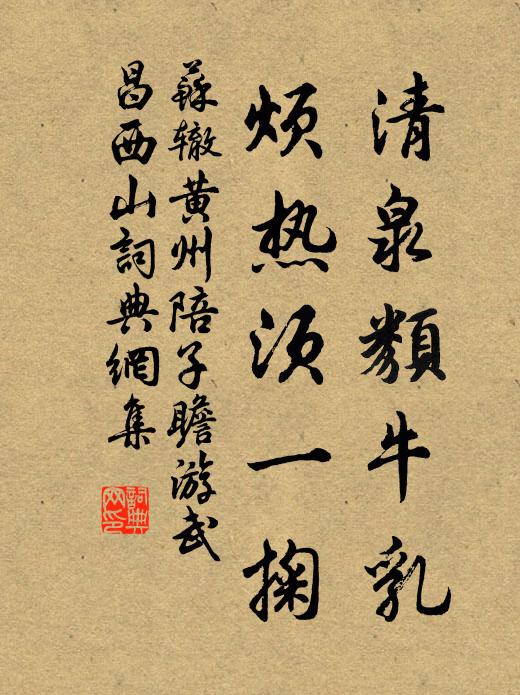 清泉類牛乳
煩热须一掬
蘇辙黄州陪子瞻游武
昌西山詞典網集
詞典
网印